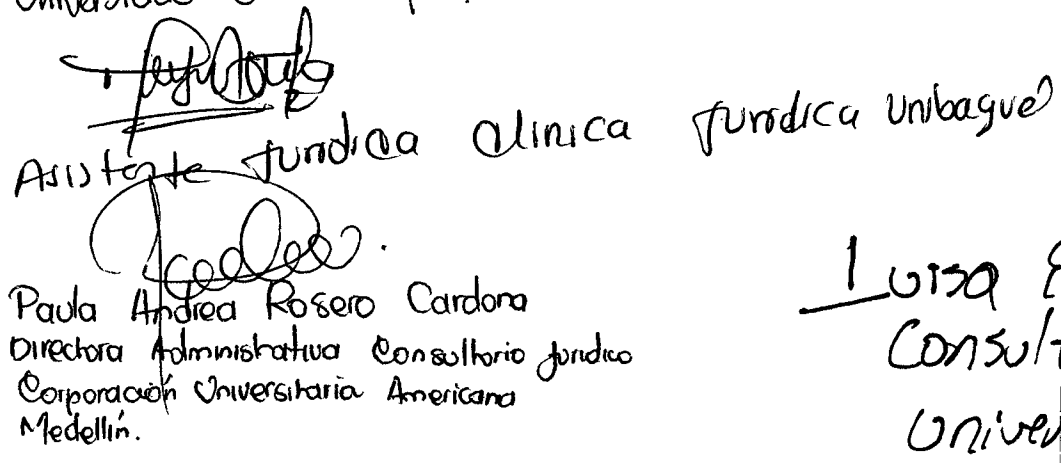 Universidad
Asistente Jurídica Clinica Jurídica Unibagué
Paula Andrea Rosero Cardona
Directora Administrativa Consultorio Jurídico
Corporación Universitaria Americana
Medellín.
Luisa
Consult
Univer